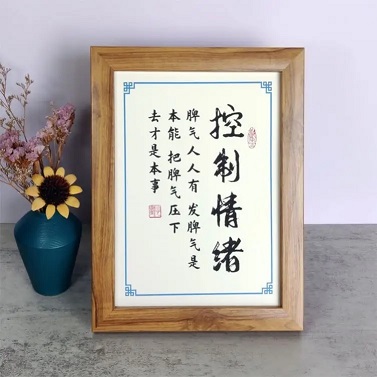 控制情绪
脾气人人有 发脾气是
本能 把脾气压下
去才是本事